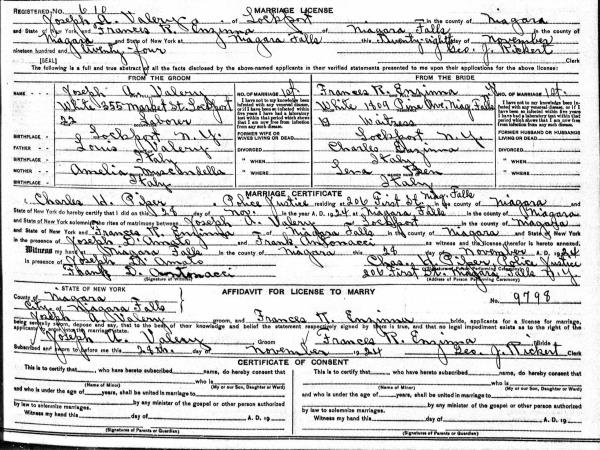 REGISTERED NO. 610 MARRIAGE LICENSE
Joseph A. Valery of Lockport in the county of Niagara
and State of New York and Frances R. Enzinna of Niagara Falls in the county of
Niagara and State of New York at Niagara Falls this Twenty-eighth day of November
nineteen hundred and Twenty-four Geo. J. Rickert Clerk
[SEAL]
The following is a full and true abstract of all the facts disclosed by the above-named applicants in their verified statements presented to me upon their applications for the above license:
FROM THE GROOM FROM THE BRIDE
NAME Joseph A. Valery NO. OF MARRIAGE 1st Frances R. Enzinna NO. OF MARRIAGE 1st
White 355 Market St. Lockport White 1409 Pine Ave. Niag. Falls
22 Laborer
I have not to my knowledge been infected with any venereal disease, or if I have been so infected within five years I have had a laboratory test within that period which shows that I am now free from infection from any such disease.
BIRTHPLACE Lockport N.Y. FORMER WIFE OR WIVES LIVING OR DEAD Lockport N.Y. FORMER HUSBAND OR HUSBANDS LIVING OR DEAD
FATHER Louis Valery DIVORCED Charles Enzinna DIVORCED
BIRTHPLACE Italy " WHEN Italy " WHEN
MOTHER Amelia " WHERE Lena " WHERE
BIRTHPLACE Italy Italy
MARRIAGE CERTIFICATE
I, Charles H. Piper a Police Justice residing at 206 First St. Niag. Falls in the county of Niagara and
State of New York do hereby certify that I did on this 28 day of Nov. in the year A. D. 1924 at Niagara Falls in the county of Niagara
and State of New York, solemnize the rites of matrimony between Joseph A. Valery of Lockport in the county of Niagara
and State of New York and Frances Enzinna of Niagara Falls in the county of Niagara and State of New York
in the presence of Joseph D. Amato and Frank Antonacci as witness and the license therefor is hereto annexed.
Witness my hand at Niagara Falls in the county of Niagara this 28 day of November A. D. 1924
In the presence of Joseph D. Amato Chas. H. Piper Police Justice
Frank D. Antonacci 206 First St. Niagara Falls N.Y.
(Signatures of Witnesses) (Address of Person Performing Ceremony)
STATE OF NEW YORK AFFIDAVIT FOR LICENSE TO MARRY No. 9798
County of Niagara
City of Niagara Falls
Joseph A. Valery groom, and Frances R. Enzinna bride, applicants for a license for marriage,
being severally sworn, depose and say, that to the best of their knowledge and belief the statement respectively signed by them is true, and that no legal impediment exists as to the right of the
applicants to enter into the marriage state.
Joseph A. Valery Groom Frances R. Enzinna Bride
Subscribed and sworn to before me this 28th day of November 1924 Geo. J. Rickert Clerk
CERTIFICATE OF CONSENT
This is to certify that who have hereto subscribed name, do hereby consent that This is to certify that who have hereto subscribed name, do hereby consent that
who is who is
(Name of Minor) (My or our Son, Daughter or Ward) (Name of Minor) (My or our Son, Daughter or Ward)
and who is under the age of years, shall be united in marriage to and who is under the age of years, shall be united in marriage to
by any minister of the gospel or other person authorized by any minister of the gospel or other person authorized
by law to solemnize marriages. by law to solemnize marriages.
Witness my hand this day of A. D. 19 Witness my hand this day of A. D. 19
(Signatures of Parents or Guardian) (Signatures of Parents or Guardian)